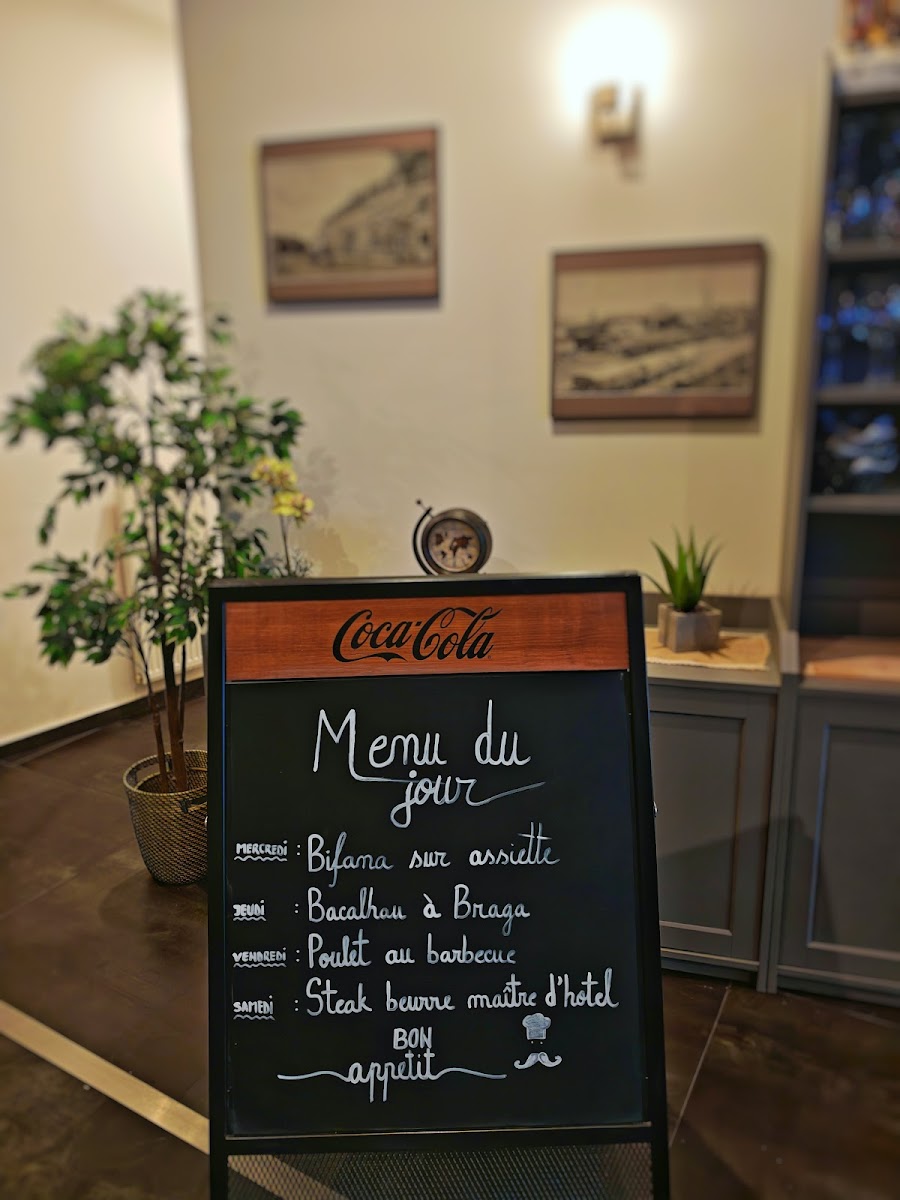 Coca-Cola
Menu du
jour
MERCREDI : Bifana sur assiette
JEUDI : Bacalhau à Braga
VENDREDI : Poulet au barbecue
SAMEDI : Steak beurre maître d'hotel
BON
appetit